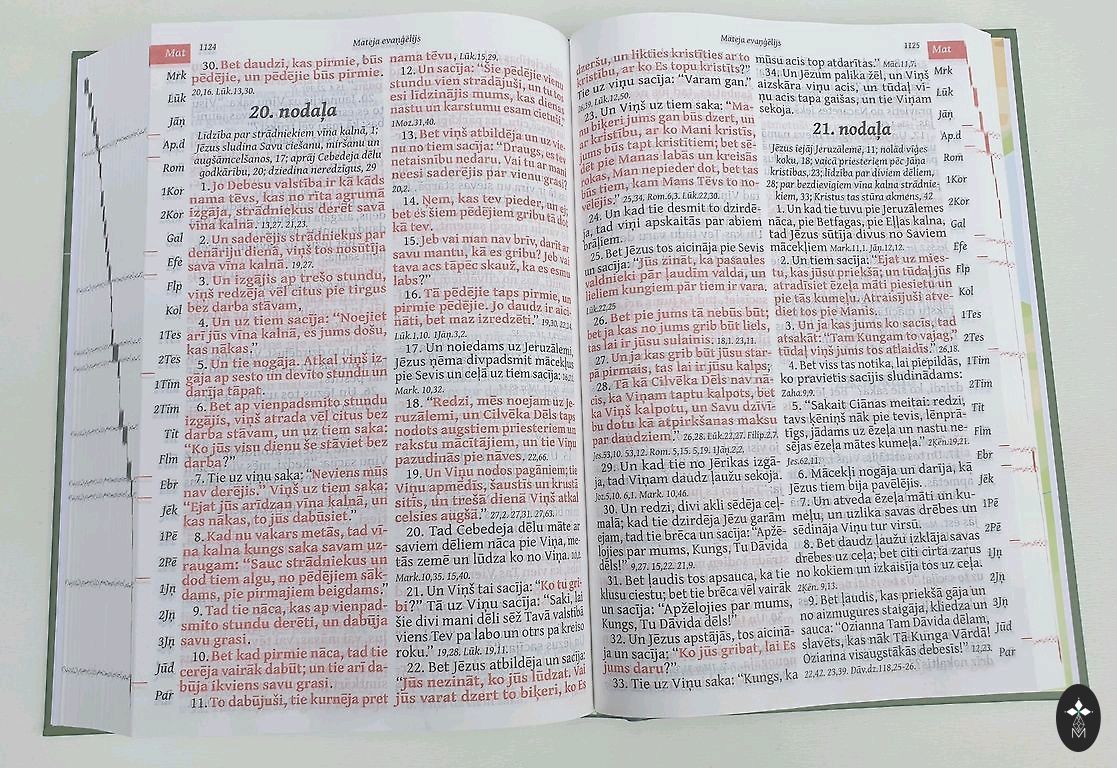 Mat
1124
Mateja evaņģēlijs
Mrk
Lūk
Jāņ
Ap.d
Rom
1Kor
2Kor
Gal
Efe
Flp
Kol
1Tes
2Tes
1Tim
2Tim
Tit
Flm
Ebr
Jēk
1Pē
2Pē
1Jņ
2Jņ
3Jņ
Jūd
Par
30. Bet daudzi, kas pirmie, būs
pēdējie, un pēdējie būs pirmie.
20,16. Lūk.13,30.
20. nodaļa
Līdzība par strādniekiem vīna kalnā, 1;
Jēzus sludina Savu ciešanu, miršanu un
augšāmcelšanos, 17; apraj Cebedeja dēlu
godkāribu, 20; dziedina neredzīgus, 29
1. Jo Debesu valstība ir kā kāds
nama tēvs, kas no rīta agrumā
izgāja, strādniekus derēt savā
vīna kalnā. 13,27. 21,23.
2. Un saderējis strādniekus par
denāriju dienā, viņš tos nosūtīja
savā vīna kalnā. 19,27.
3. Un izgājis ap trešo stundu,
viņš redzēja vēl citus pie tirgus
bez darba stāvam,
4. Un uz tiem sacīja: “Noejiet
arī jūs vīna kalnā, es jums došu,
kas nākas.”
5. Un tie nogāja. Atkal viņš iz-
gāja ap sesto un devīto stundu un
darīja tāpat.
6. Bet ap vienpadsmito stundu
izgājis, viņš atrada vēl citus bez
darba stāvam, un uz tiem saka:
“Ko jūs visu dienu še stāviet bez
darba?”
7. Tie uz viņu saka: “Neviens mūs
nav derējis.” Viņš uz tiem saka:
“Ejat jūs arīdzan vīna kalnā, un
kas nākas, to jūs dabūsiet.”
8. Kad nu vakars metās, tad vī-
na kalna kungs saka savam uz-
raugam: “Sauc strādniekus un
dod tiem algu, no pēdējiem sāk-
dams, pie pirmajiem beigdams.”
9. Tad tie nāca, kas ap vienpad-
smito stundu derēti, un dabūja
savu grasi.
10. Bet kad pirmie nāca, tad tie
cerēja vairāk dabūt; un tie arī da-
būja ikviens savu grasi.
11. To dabūjuši, tie kurnēja pret
nama tēvu, Lūk.15,29.
12. Un sacīja: “Šie pēdējie vienu
stundu vien strādājuši, un tu tos
esi līdzinājis mums, kas dienas
nastu un karstumu esam cietuši.”
1Moz.31,40.
13. Bet viņš atbildēja un uz vie-
nu no tiem sacīja: “Draugs, es tev
netaisnību nedaru. Vai tu ar mani
neesi saderējis par vienu grasi?
20,2.
14. Ņem, kas tev pieder, un ej;
bet es šiem pēdējiem gribu tā dot
kā tev.
15. Jeb vai man nav brīv, darīt ar
savu mantu, kā es gribu? Jeb vai
tava acs tāpēc skauž, ka es esmu
labs?”
16. Tā pēdējie taps pirmie, un
pirmie pēdējie. Jo daudz ir aici-
nāti, bet maz izredzēti.” 19,30. 22,14.
Lūk.1,10. 1Jāņ.3,2.
17. Un noiedams uz Jeruzālemi,
Jēzus ņēma divpadsmit mācekļus
pie Sevis un ceļā uz tiem sacīja: 16,21.
Mark. 10,32.
18. “Redzi, mēs noejam uz Je-
ruzālemi, un Cilvēka Dēls taps
nodots augstiem priesteriem un
rakstu mācītājiem, un tie Viņu
pazudinās pie nāves, 22,66.
19. Un Viņu nodos pagāniem; tie
Viņu apmēdīs, šaustīs un krustā
sitīs, un trešā dienā Viņš atkal
celsies augšā.” 27,2. 27,31. 27,63.
20. Tad Cebedeja dēlu māte ar
saviem dēliem nāca pie Viņa, me-
tās zemē un lūdza ko no Viņa.
Mark.10,35. 15,40.
21. Un Viņš tai sacīja: “Ko tu gri-
bi?” Tā uz Viņu sacīja: “Saki, lai
šie divi mani dēli sēž Tavā valstībā
viens Tev pa labo un otrs pa kreiso
roku.” 19,28. Lūk. 19,11.
22. Bet Jēzus atbildēja un sacīja:
“Jūs nezināt, ko jūs lūdzat. Vai
jūs varat dzert to biķeri, ko Es
Mateja evaņģēlijs
1125
Mat
dzeršu, un likties kristīties ar to
kristību, ar ko Es topu kristīts?”
Tie uz Viņu sacīja: “Varam gan.”
26,39. Lūk.12,50.
23. Un Viņš uz tiem saka: “Ma-
nu biķeri jums gan būs dzert, un
ar kristību, ar ko Mani kristīs,
jums būs tapt kristītiem; bet sē-
dēt pie Manas labās un kreisās
rokas, Man nepieder dot, bet tas
būs tiem, kam Mans Tēvs to no-
vēlējis.” 25,34. Rom.6,3. Lūk.22,30.
24. Un kad tie desmit to dzirdē-
ja, tad viņi apskaitās par abiem
brāļiem.
25. Bet Jēzus tos aicināja pie Sevis
un sacīja: “Jūs zināt, ka pasaules
valdnieki pār ļaudīm valda, un
lieliem kungiem pār tiem ir vara.
Lūk.22,25
26. Bet pie jums tā nebūs būt;
bet ja kas no jums grib būt liels,
tas lai ir jūsu sulainis. 18,1. 23,11.
27. Un ja kas grib būt jūsu star-
pā pirmais, tas lai ir jūsu kalps;
28. Tā kā Cilvēka Dēls nav nā-
cis, ka Viņam taptu kalpots, bet
ka Viņš kalpotu, un Savu dzīvī-
bu dotu kā atpirkšanas maksu
par daudziem.” 26,28. Lūk.22,27. Filip.2,7.
Jes.53,10. 53,12. Rom. 5,15. 5,19. 1Jāņ.2,2.
29. Un kad tie no Jērikas izgā-
ja, tad Viņam daudz ļaužu sekoja.
Joz.5,10. 6,1. Mark. 10,46.
30. Un redzi, divi akli sēdēja ceļ-
malā; kad tie dzirdēja Jēzu garām
ejam, tad tie brēca un sacīja: “Apžē-
lojies par mums, Kungs, Tu Dāvida
dēls!” 9,27. 15,22. 21,9.
31. Bet ļaudis tos apsauca, ka tie
klusu ciestu; bet tie brēca vēl vairāk
un sacīja: “Apžēlojies par mums,
Kungs, Tu Dāvida dēls!”
32. Un Jēzus apstājās, tos aicinā-
ja un sacīja: “Ko jūs gribat, lai Es
jums daru?”
33. Tie uz Viņu saka: “Kungs, ka
mūsu acis top atdarītas.” Mac.11,7.
34. Un Jēzum palika žēl, un Viņš
aizskāra viņu acis, un tūdaļ vi-
ņu acis tapa gaišas, un tie Viņam
sekoja.
21. nodaļa
Jēzus iejāj Jeruzālemē, 11; nolād vīģes
koku, 18; vaicā priesteriem pēc Jāņa
kristības, 23; līdzība par diviem dēliem,
28; par bezdievīgiem vīna kalna strādnie-
kiem, 33; Kristus tas stūra akmens, 42
1. Un kad tie tuvu pie Jeruzālemes
nāca, pie Betfagas, pie Eļļas kalna,
tad Jēzus sūtīja divus no Saviem
mācekļiem Mark.11,1. Jāņ.12,12.
2. Un tiem sacīja: “Ejat uz mies-
tu, kas jūsu priekšā; un tūdaļ jūs
atradīsiet ēzeļa māti piesietu un
pie tās kumeļu. Atraisījuši atve-
diet tos pie Manis.
3. Un ja kas jums ko sacīs, tad
atsakāt: “Tam Kungam to vajag,”
tūdaļ viņš jums tos atlaidīs.” 26,18.
4. Bet viss tas notika, lai piepildās,
ko pravietis sacījis sludinādams:
Zaha.9,9.
5. “Sakait Ciānas meitai: redzi,
tavs ķēniņš nāk pie tevis, lēnprā-
tīgs, jādams uz ēzeļa un nastu ne-
sējas ēzeļa mātes kumeļa.” 2Ķēn.19,21.
Jes.62,11.
6. Mācekļi nogāja un darīja, kā
Jēzus tiem bija pavēlējis.
7. Un atveda ēzeļa māti un ku-
meļu, un uzlika savas drēbes un
sēdināja Viņu tur virsū.
8. Bet daudz ļaužu izklāja savas
drēbes uz ceļa; bet citi cirta zarus
no kokiem un izkaisīja tos uz ceļa.
2Ķēn. 9,13.
9. Bet ļaudis, kas priekšā gāja un
no aizmugures staigāja, kliedza un
sauca: “Ozianna Tam Dāvida dēlam,
slavēts, kas nāk Tā Kunga Vārdā!
Ozianna visaugstākās debesīs!” 12,23.
22,42. 23,39. Dāv.dz.118,25-26.
Mrk
Lūk
Jāņ
Ap.d
Rom
1Kor
2Kor
Gal
Efe
Flp
Kol
1Tes
2Tes
1Tim
2Tim
Tit
Flm
Ebr
Jēk
1Pē
2Pē
1Jņ
2Jņ
3Jņ
Jūd
Par